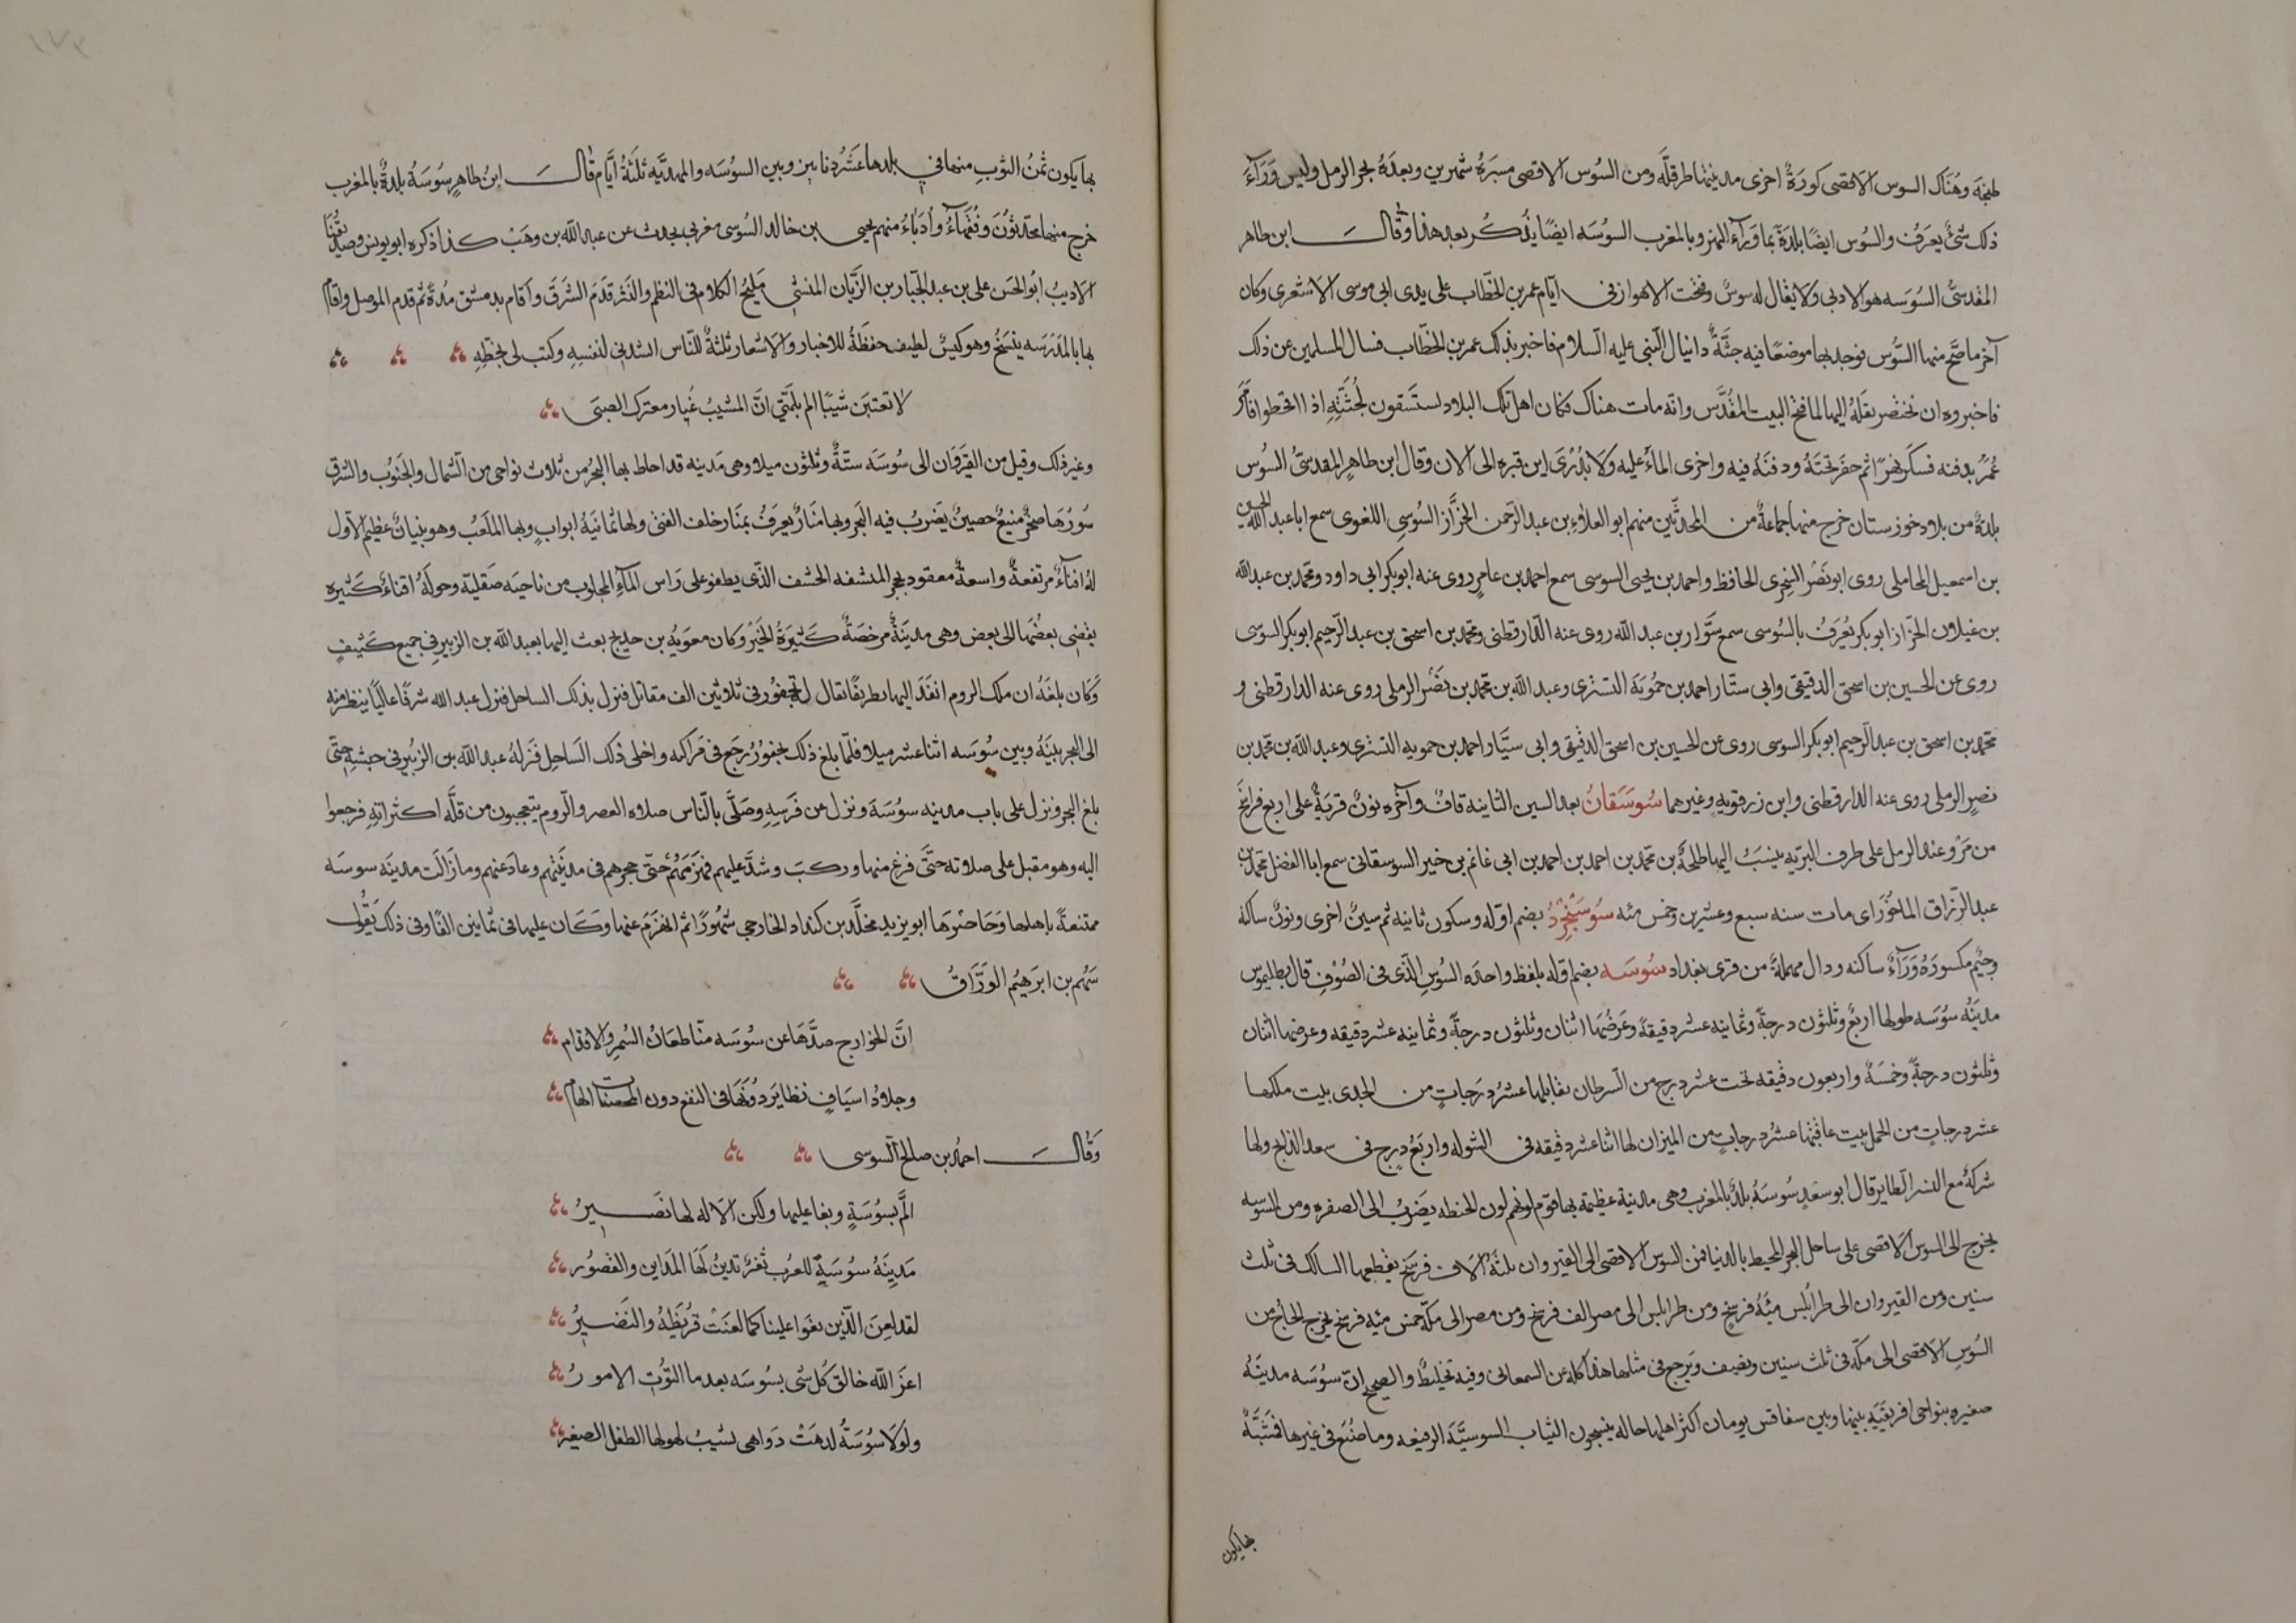 طنجة وهناك السوس الاقصى كورة اخرى مدينتها طرقلة ومن السوس الاقصى مسيرة شهرين وبعده بحر الرمل وليس وراء
ذلك شئ يعرف والسوس ايضا بلدة بما وراء النهر وبالمغرب السوسه ايضا يذكر بعد هذا وقال ابن طاهر
المقدسى السوسه هو الادنى ولا يقال له سوس وفتحت الاهواز فى ايام عمر بن الخطاب على يدى ابى موسى الاشعرى وكان
آخر ما فتح منها السوس فوجد بها موضعا فيه جثة دانيال النبى عليه السلام فاخبر بذلك عمر بن الخطاب فسال المسلمين عن ذلك
فاخبروه ان بختنصر نقله اليها لما فتح البيت المقدس وانه مات هناك فكان اهل تلك البلاد يستسقون بجثته اذا اقحطوا فامر
عمر بدفنه فسكر نهرا ثم حفر تحته ودفنه فيه واجرى الماء عليه ولا يدرى اين قبره الى الان وقال ابن طاهر المقدسى السوس
بلدة من بلاد خوزستان خرج منها جماعة من المحدثين منهم ابو العلاء بن عبد الرحمن الخزاز السوسى اللغوى سمع ابا عبد الله الحسين
بن اسمعيل المحاملى روى ابو نصر السجزى الحافظ واحمد بن يحيى السوسى سمع احمد بن عامر روى عنه ابو بكر ابى داود ومحمد بن عبد الله
بن غيلان الخزاز ابو بكر يعرف بالسوسى سمع سوار بن عبد الله روى عنه الدارقطنى ومحمد بن اسحق بن عبد الرحيم ابو بكر السوسى
روى عن الحسين بن اسحق الدقيقى وابى ستار احمد بن حمويه التسترى وعبد الله بن محمد بن نصر الرملى روى عنه الدارقطنى و
محمد بن اسحق بن عبد الرحيم ابو بكر السوسى روى عن الحسين بن اسحق الدقيقى وابى سيار احمد بن حمويه التسترى وعبد الله بن محمد بن
نصر الرملى روى عنه الدارقطنى وابن زرقويه وغيرهما سوسقان بعد السين الثانية قاف وآخره نون قرية على اربع فراسخ
من مرو عند الرمل على طرف البرية ينسب اليها طلحة بن محمد بن احمد بن احمد بن ابى غانم بن خير السوسقانى سمع ابا الفضل محمد بن
عبد الرزاق الماخورى مات سنه سبع وعشرين وخمس مئه سوسنجرد بضم اوله وسكون ثانيه ثم سين اخرى ونون ساكنه
وجيم مكسورة وراء ساكنه ودال مهملة من قرى بغداد سوسه بضم اوله بلفظ واحده السوس الذى فى الصوف قال بطليموس
مدينة سوسه طولها اربع وثلثون درجة وثمانيه عشر دقيقة وعرضها اثنان وثلثون درجة وثمانيه عشر دقيقه وعرضها اثنان
وثلثون درجة وخمسة واربعون دقيقه تحت عشر درج من السرطان يقابلها عشر درجات من الجدى بيت ملكها
عشر درجات من الحمل بيت عاقبتها عشر درجات من الميزان لها اثنا عشر دقيقه فى الشوله واربع درج فى سعد الذابح ولها
شركة مع النسر الطاير قال ابو سعد سوسة بلد بالمغرب وهى مدينة عظيمة بها قوم لونهم لون الحنطه يضرب الى الصفره ومن السوسه
يخرج الى السوس الاقصى على ساحل البحر المحيط بالدنيا فمن السوس الاقصى الى القيروان ثلثة الاف فرسخ يقطعها السالك فى ثلث
سنين ومن القيروان الى طرابلس مئة فرسخ ومن طرابلس الى مصر الف فرسخ ومن مصر الى مكة خمس مئه فرسخ يخرج الحاج من
السوس الاقصى الى مكه فى ثلث سنين ونصف ويرجع فى مثلها هذا كله عن السمعانى وفيه تخليط والصحيح ان سوسه مدينة
صغيره بنواحى افريقيه بينها وبين سفاقس يومان اكثر اهلها حاكه ينسجون الثياب السوسية الرفيعه وما صنع فى غيرها فمشبه
بها يكون
بها يكون ثمن الثوب منها فى بلدها عشر دنانير وبين السوسه والمهديه ثلثة ايام قال ابن طاهر سوسة بلدة بالمغرب
خرج منها محدثون وفقهاء وادباء منهم يحيى بن خالد السوسى مغربى يحدث عن عبد الله بن وهب كذا ذكره ابو يونس وصديقنا
الاديب ابو الحسن على بن عبد الجبار بن الزيان المنشئ مليح الكلام فى النظم والنثر قدم الشرق واقام بدمشق مدة ثم قدم الموصل واقام
بها بالمدرسه ينسخ وهو كيس لطيف حفظة للاخبار والاشعار ثلثة للناس انشدنى لنفسه وكتب لى بخطه
لا تعتبن شيبا الم بلمتى ان المشيب غبار معترك الصبى
وغير ذلك وقيل من القيروان الى سوسه ستة وثلثون ميلا وهى مدينه قد احاط بها البحر من ثلاث نواحى من الشمال والجنوب والشرق
سورها صخر منيع حصين يضرب فيه البحر وبها منار يعرف بمنار خلف الفتى ولها ثمانية ابواب وبها الملعب وهو بنيان عظيم الاول
له اقناء مرتفعة واسعة معقود بحجر المنشفه الخشف الذى يطفو على راس الماء المجلوب من ناحيه صقلية وحوله اقناء كثيره
يفضى بعضها الى بعض وهى مدينة مرخصة كثيرة الخير وكان معويه بن حديج بعث اليها بعبد الله بن الزبير فى جميع كثيف
وكان بلغه ان ملك الروم انفذ اليها بطريقا يقال ل نجفور فى ثلاثين الف مقاتل فنزل بذلك الساحل فنزل عبد الله شرفا عاليا ينظر منه
الى البحر بينه وبين سوسه اثنا عشر ميلا فلما بلغ ذلك نجفور رجع فى مراكبه واخلى ذلك الساحل فنزله عبد الله بن الزبير فى جيشه حتى
بلغ البحر ونزل على باب مدينه سوسة ونزل عن فرسه وصلى بالناس صلاه العصر والروم يتعجبون من قلة اكتراثه فرجعوا
اليه وهو مقبل على صلاته حتى فرغ منها وركب وشد عليهم فهزمهم حتى حجرهم فى مدينتهم وعاد عنهم وما زالت مدينه سوسه
ممتنعة باهلها وحاصرها ابو يزيد مخلد بن كنداد الخارجى شهورا ثم انهزم عنها وكان عليها فى ثمانين الفا وفى ذلك يقول
سهم بن ابرهيم الوراق
ان الخوارج صدها عن سوسه منا طعان السمر والاقدام
وجلاد اسياف تطاير دونها فى النقع دون المحصنات الهام
وقال احمد بن صالح السوسى
الم بسوسة وبغا عليها ولكن الاله لها نصير
مدينة سوسة للعرب ثغر تدين لها المداين والقصور
لقد لعن الذين بغوا علينا كما لعنت قريظة والنضير
اعز الله خالق كل شى بسوسه بعد ما التوت الامور
ولولا سوسة لدهت دواهى يشيب لهولها الطفل الصغير